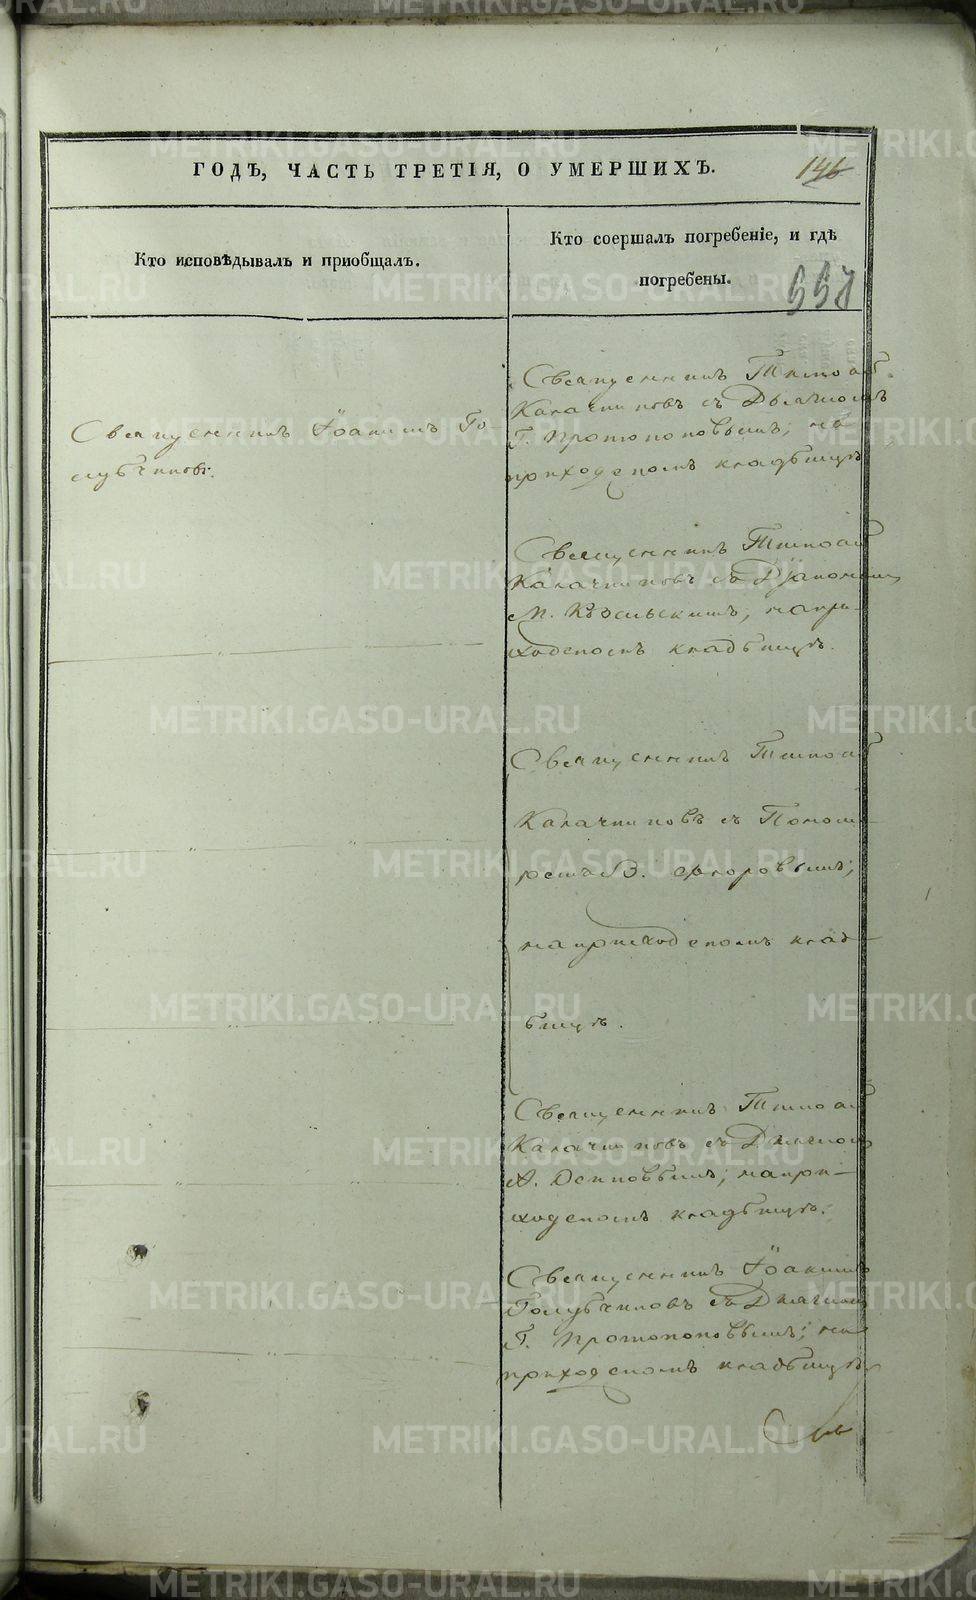 ГОДЪ, ЧАСТЬ ТРЕТІЯ, О УМЕРШИХЪ.
146
Кто исповѣдывалъ и пріобщалъ.
Кто соершалъ погребеніе, и гдѣ
погребены.
557
Священникъ Іоакимъ Го-
лубчиковъ.
Священникъ Тимоѳей
Калачниковъ съ Дьячкомъ
Г. Протопоповымъ; на
приходскомъ кладбищѣ
Священникъ Тимоѳей
Калачниковъ съ Діакономъ
М. на при-
ходскомъ кладбищѣ.
Священникъ Тимоѳей
Калачниковъ съ Поном-
В. Флоровымъ;
на приходскомъ клад-
бищѣ.
Священникъ Тимоѳей
Калачниковъ съ Дьячкомъ
А. на при-
ходскомъ кладбищѣ.
Священникъ Іоакимъ
Голубчиковъ съ Дьячкомъ
Г. Протопоповымъ; на
приходскомъ кладбищѣ
METRIKI.GASO-URAL.RU